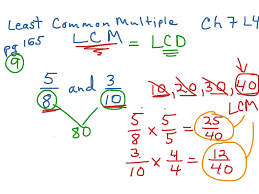 Least Common Multiple Ch 7 L4
LCM = LCD
pg 165
9
5/8 and 3/10
80
10, 20, 30, 40
LCM
5/8 × 5/5 = 25/40
3/10 × 4/4 = 12/40